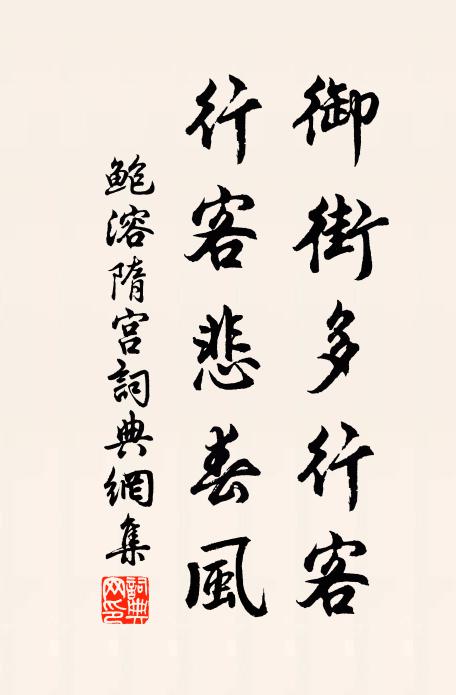 御街多行客
行客悲春風
鮑溶隋宮詞典網集
詞典網印